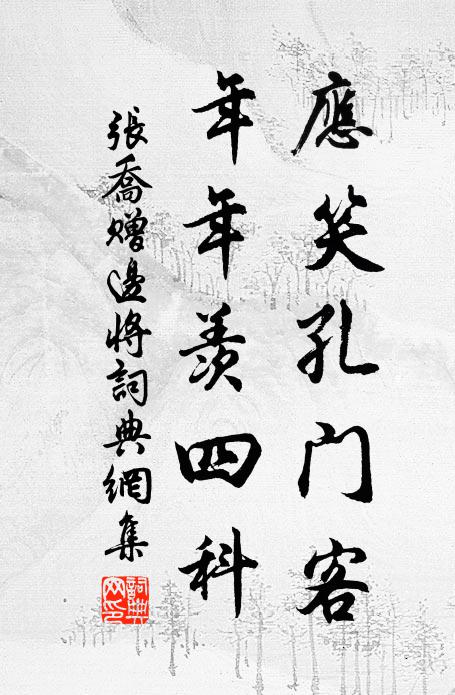 應笑孔门客
年年羨四科
張喬贈邊將詞典網集